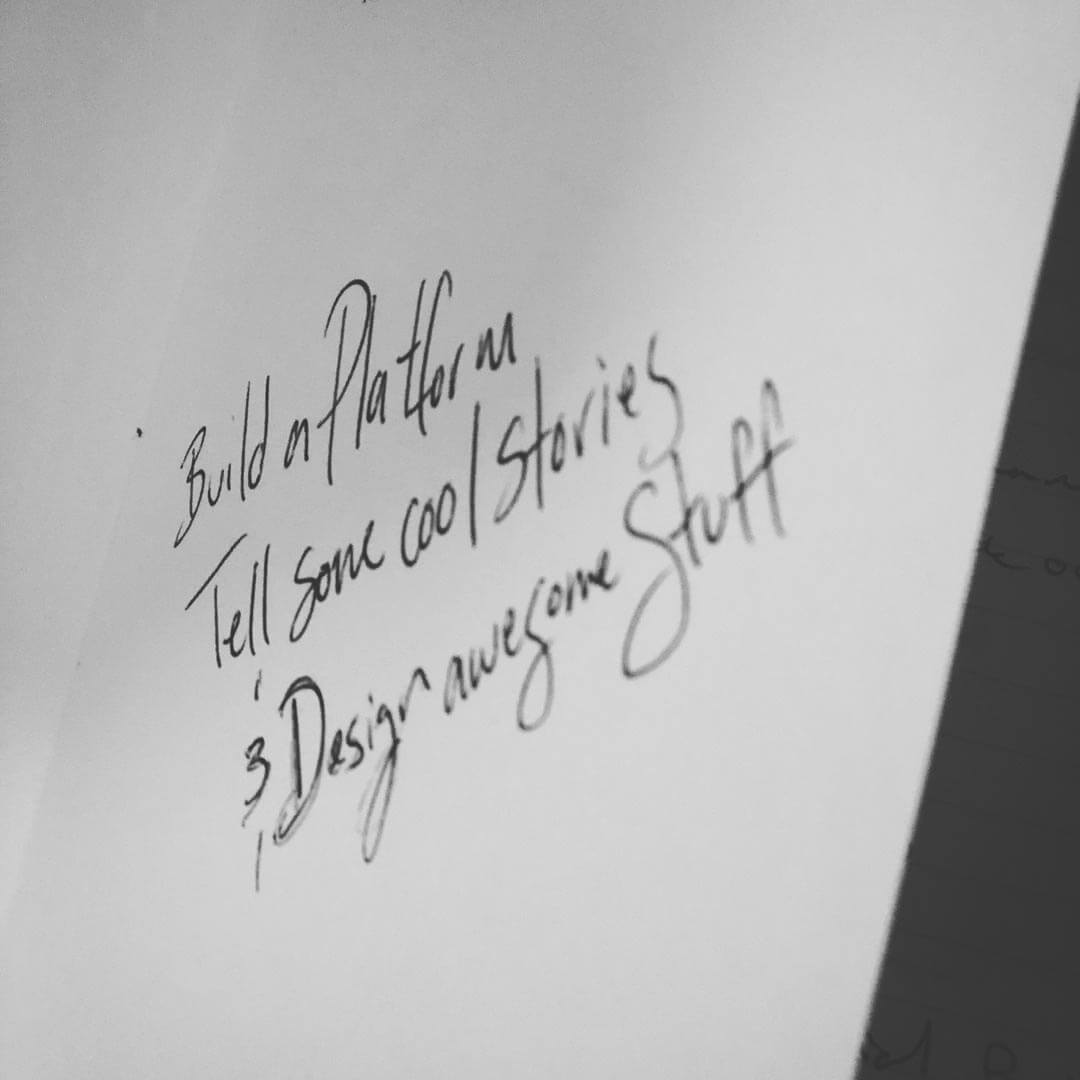 Build a Platform
Tell some cool stories
& Design awesome Stuff